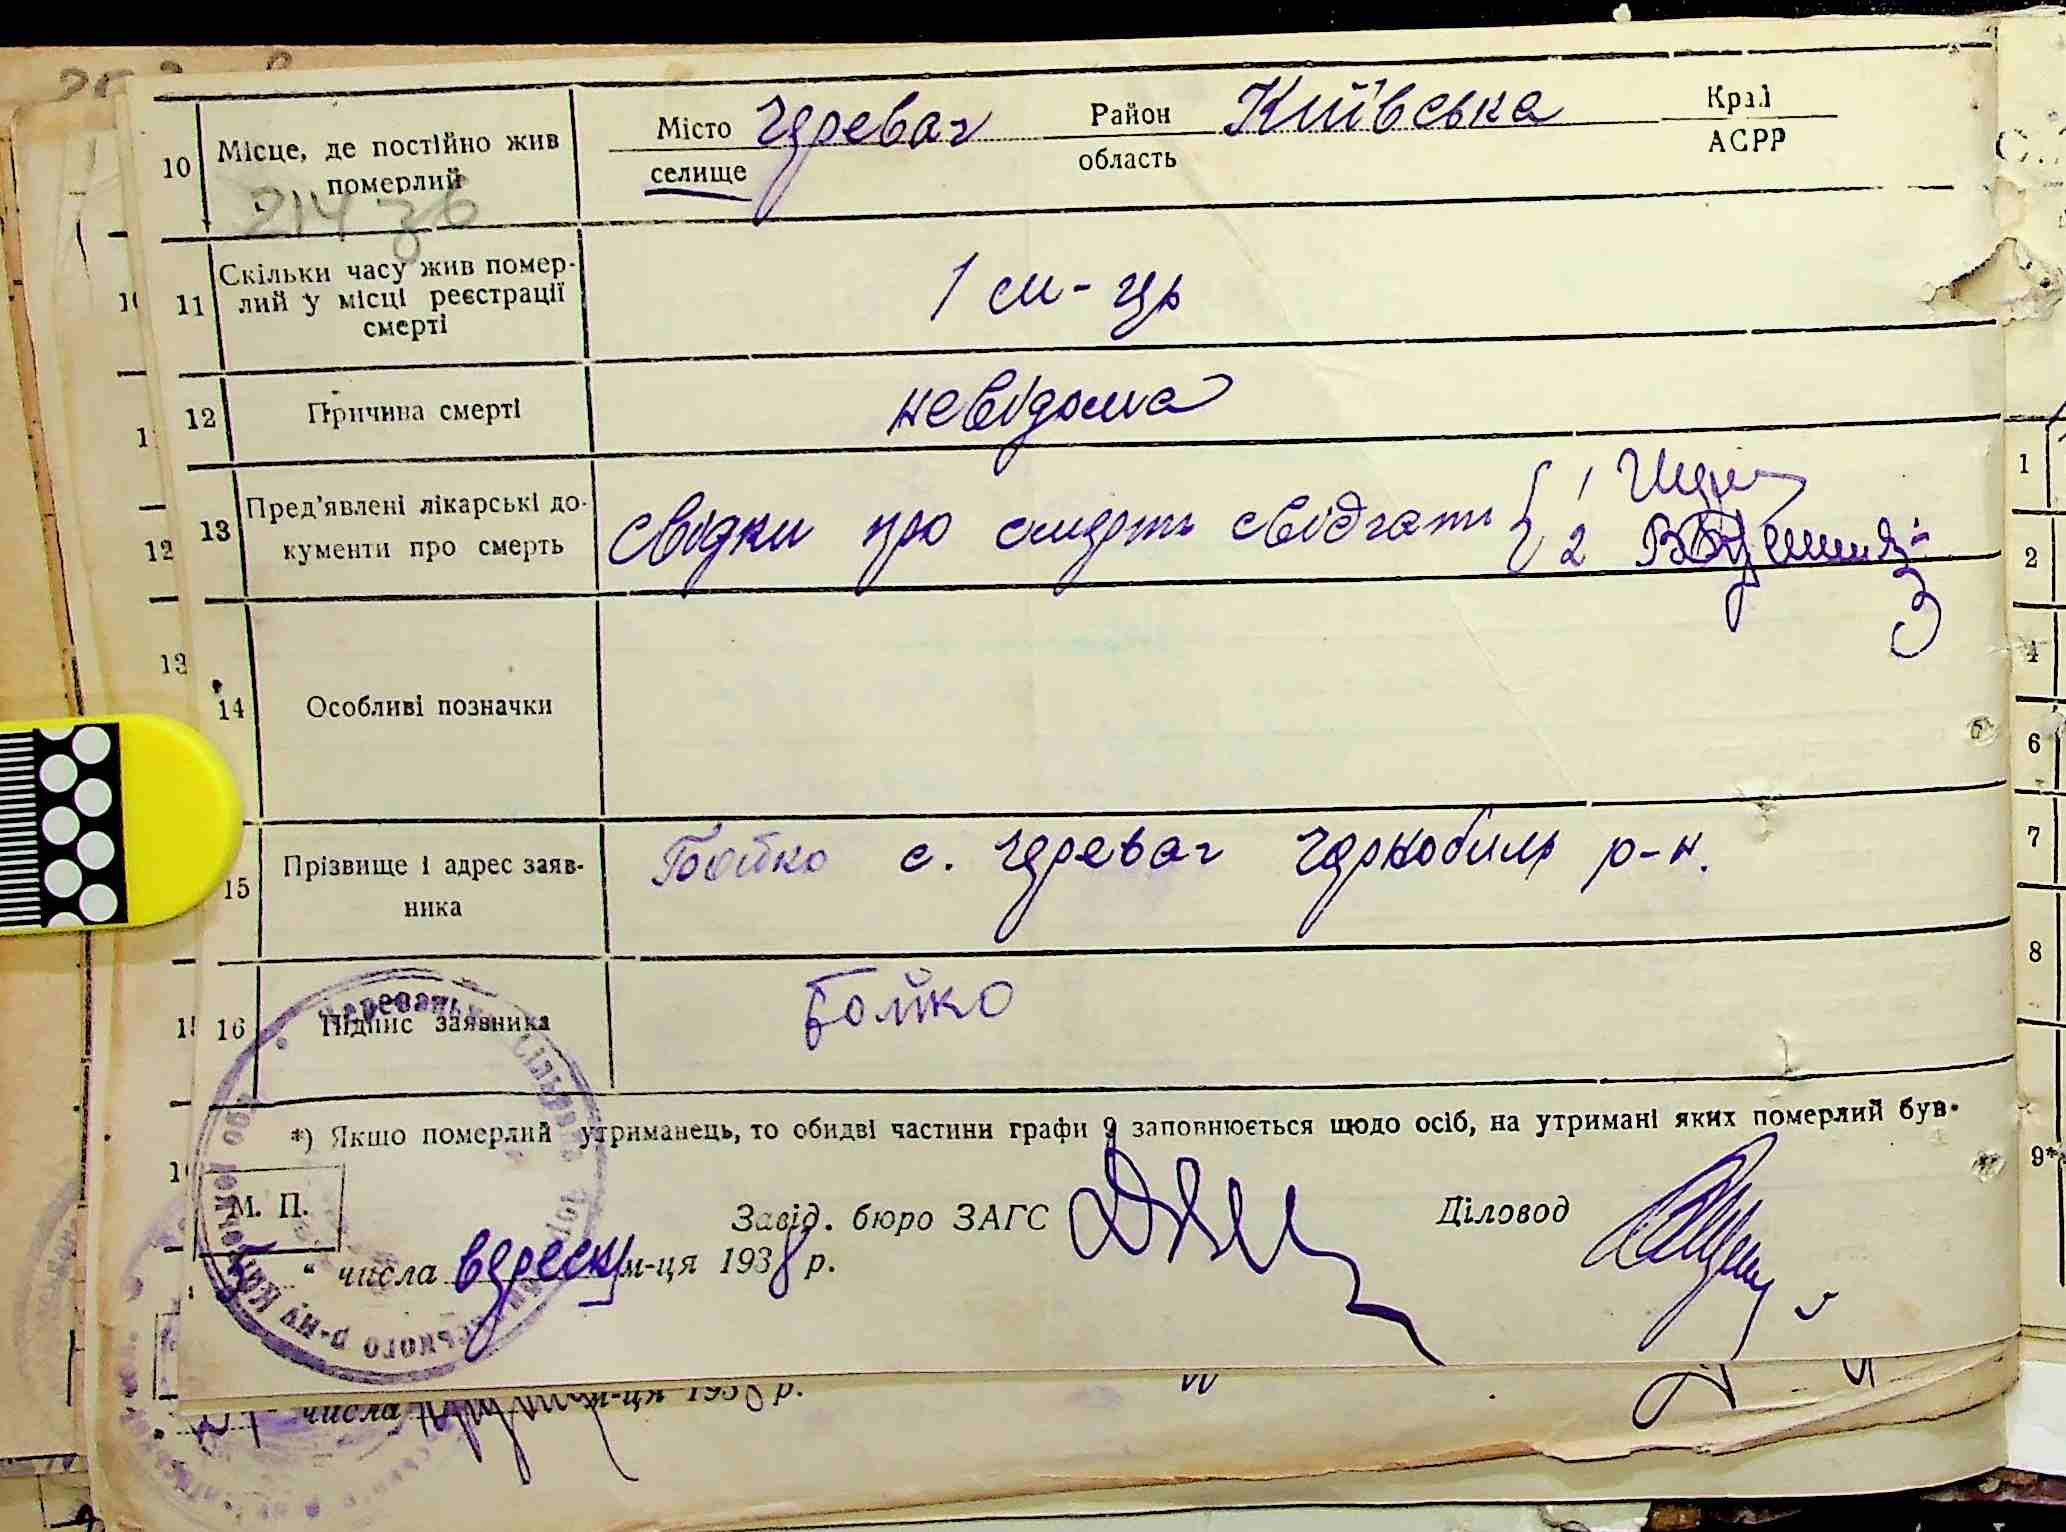 10 Місце, де постійно жив померлий
214 зв
Місто Черевач Район Київська Край
селище область АСРР
11 Скільки часу жив помер-
лий у місці реєстрації
смерті
1 м-ць
12 Причина смерті невідома
13 Пред'явлені лікарські до-
кументи про смерть
свідки про смерть свідчать 1
2
14 Особливі позначки
15 Прізвище і адрес заяв-
ника
Бойко с. Черевач Чернобиль р-н.
16 Підпис заявника Бойко
*) Якшо померлий утриманець, то обидві частини графи 9 заповнюється щодо осіб, на утримані яких померлий був.
М. П.
Завід. бюро ЗАГС Діловод
5 " числа вересня м-ця 1938 р.
числа м-ця 1938 р.